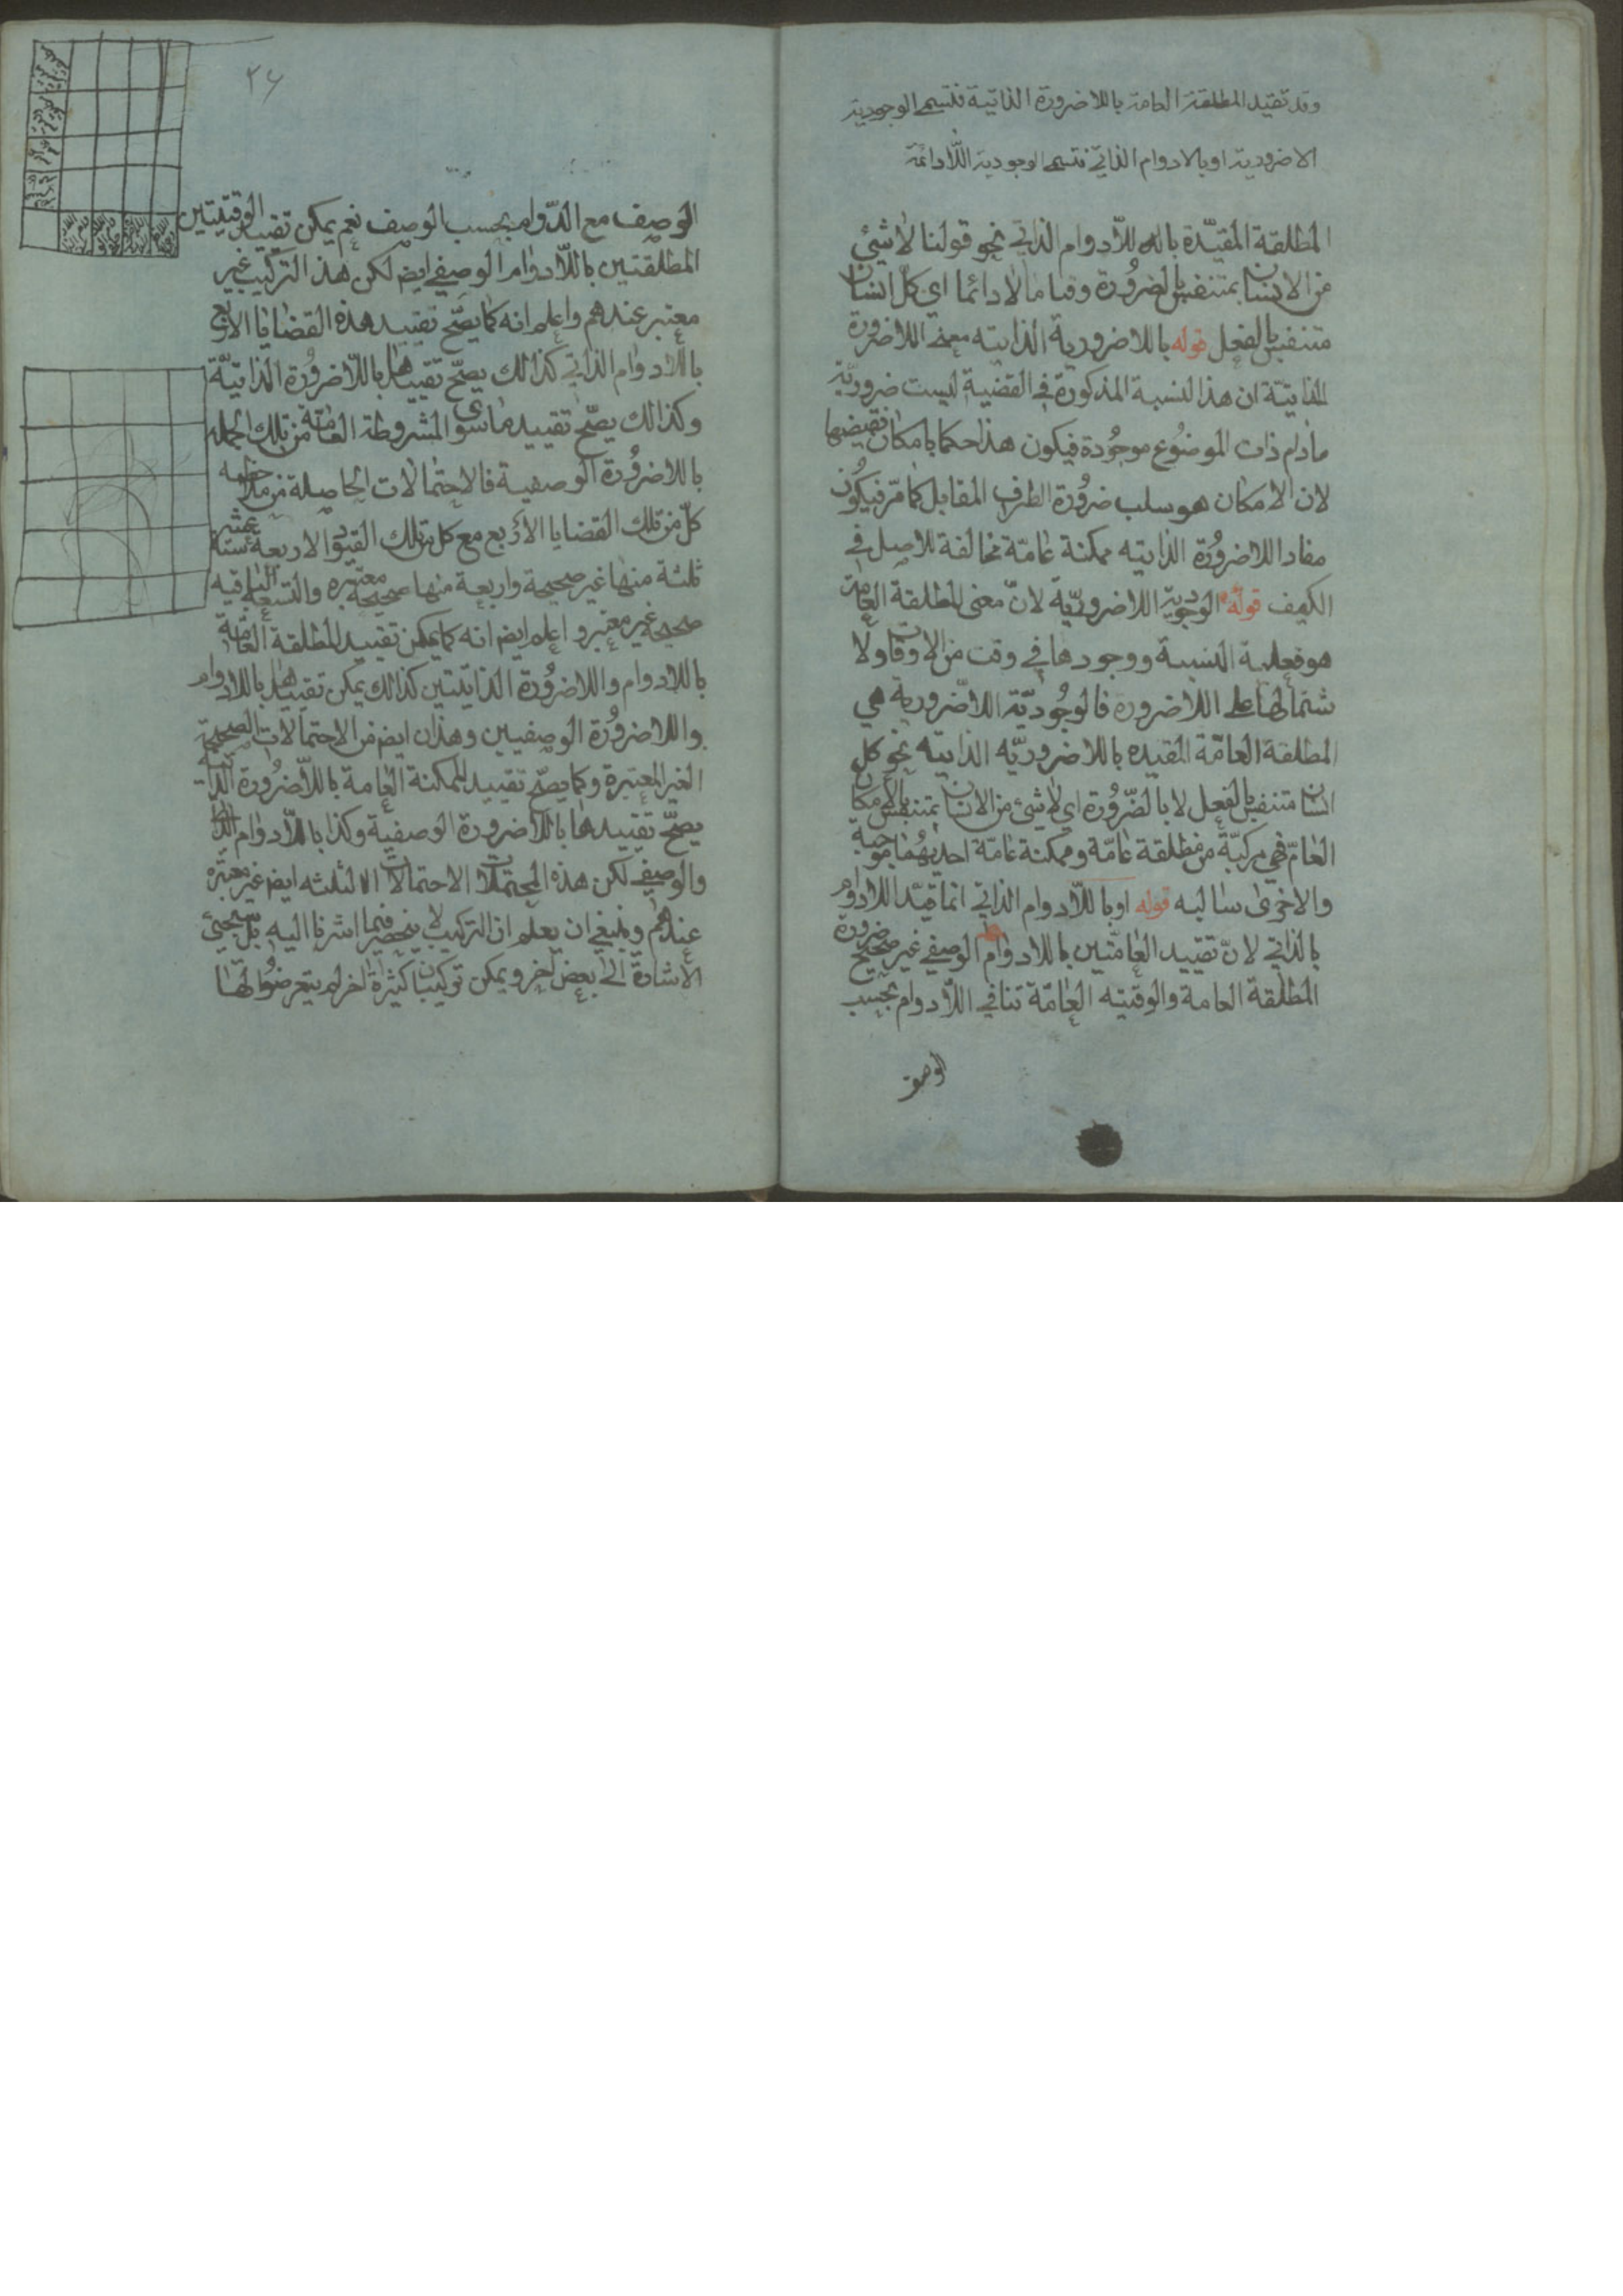 وقد تقيد المطلقة العامة باللاضرورة الذاتية فتسمى الوجودية
الاضرورية او بالادوام الذاتي فتسمى الوجودية اللّادائمة
المطلقة المقيّدة باللّادوام الذاتي نحو قولنا لا شئ
من الانسان بمتنفس بالضرُورة وقتا ما لا دائما اي كلّ انسان
متنفس بالفعل قوله باللاضرورية الذاتيه معنى اللاضرورة
الذاتيّة ان هذا النسبة المذكورة في القضية ليست ضروريّة
مادام ذات الموضُوع موجُودة فيكون هذا حكما بامكان نقيضها
لان الامكان هو سلب ضرُورة الطرف المقابل كما مرّ فيكُون
مفاد اللاضرُورة الذاتيه ممكنة عامّة مخالفة للاصل في
الكيف قوله الوجودية اللاضروريّة لانّ معنى المطلقة العامة
هو فعلية النسبة ووجودها في وقت من الاوقات ولا
شتمالها على اللاضرورة فالوجُوديّة اللاضّرورية هي
المطلقة العامّة المقيده باللاضروريّه الذاتيّه نحو كل
انسان متنفس بالفعل لا بالضّرُورة اي لا شئ من الانسان بمتنفس بالامكان
العامّ فهي مركبّة من مطلقة عامّة وممكنة عامّة احديهُما موجبة
والاخرى سالبه قوله او باللّادوام الذاتي انما قيّد اللادوام
بالذاتي لانّ تقييد العامّتين باللادوام الوصفي غير صحيح ضرورة
المطلقة العامة والوقتيه العامّة تنافي اللّادوام بحسب
الوصف
٢٤
الوصف مع الدّوام بحسب الوصف نعم يمكن تقييد الوقتيتين
المطلقتين باللّادوام الوصفي ايض لكن هذا التركيب غير
معتبر عندهم واعلم انه كما يصّح تقييد هذه القضايا الاربع
باللّادوام الذاتي كذالك يصحّ تقييدها باللّاضرُورة الذاتيّة
وكذالك يصّح تقييد ما سوى المشروطة العامّة من تلك الجمله
باللاضرُورة الوصفية فالاحتمالات الحاصلة من ملاحظه
كلّ من تلك القضايا الأربع مع كل من تلك القيود الاربعة ستة عشر
ثلثة منها غير صحيحة واربعة منها صحيحة معتبره والتسعة الباقيه
صحيحه غير معتبر واعلم ايض انه كما يمكن تقييد المطلقة العامّة
باللادوام واللاضرُورة الذاتيّتين كذالك يمكن تقييدها باللادوام
واللاضرُورة الوصفيين وهذان ايض من الاحتمالات الصحيحة
الغير المعتبرة وكما يصّح تقييد الممكنة العامة باللّاضرُورة الذاتيه
يصحّ تقييدها باللاضرورة الوصفية وكذا باللّادوام الذاتي
والوصفي لكن هذه الاحتمالات الثلثه ايض غير معتبرة
عندهم وينبغي ان يعلم ان التركيب لا ينحصر فيما اشرنا اليه بل سيجئ
الاشادة الى بعض اخر ويمكن تركيبات كثيرة اخر لم يتعرضُوا لها